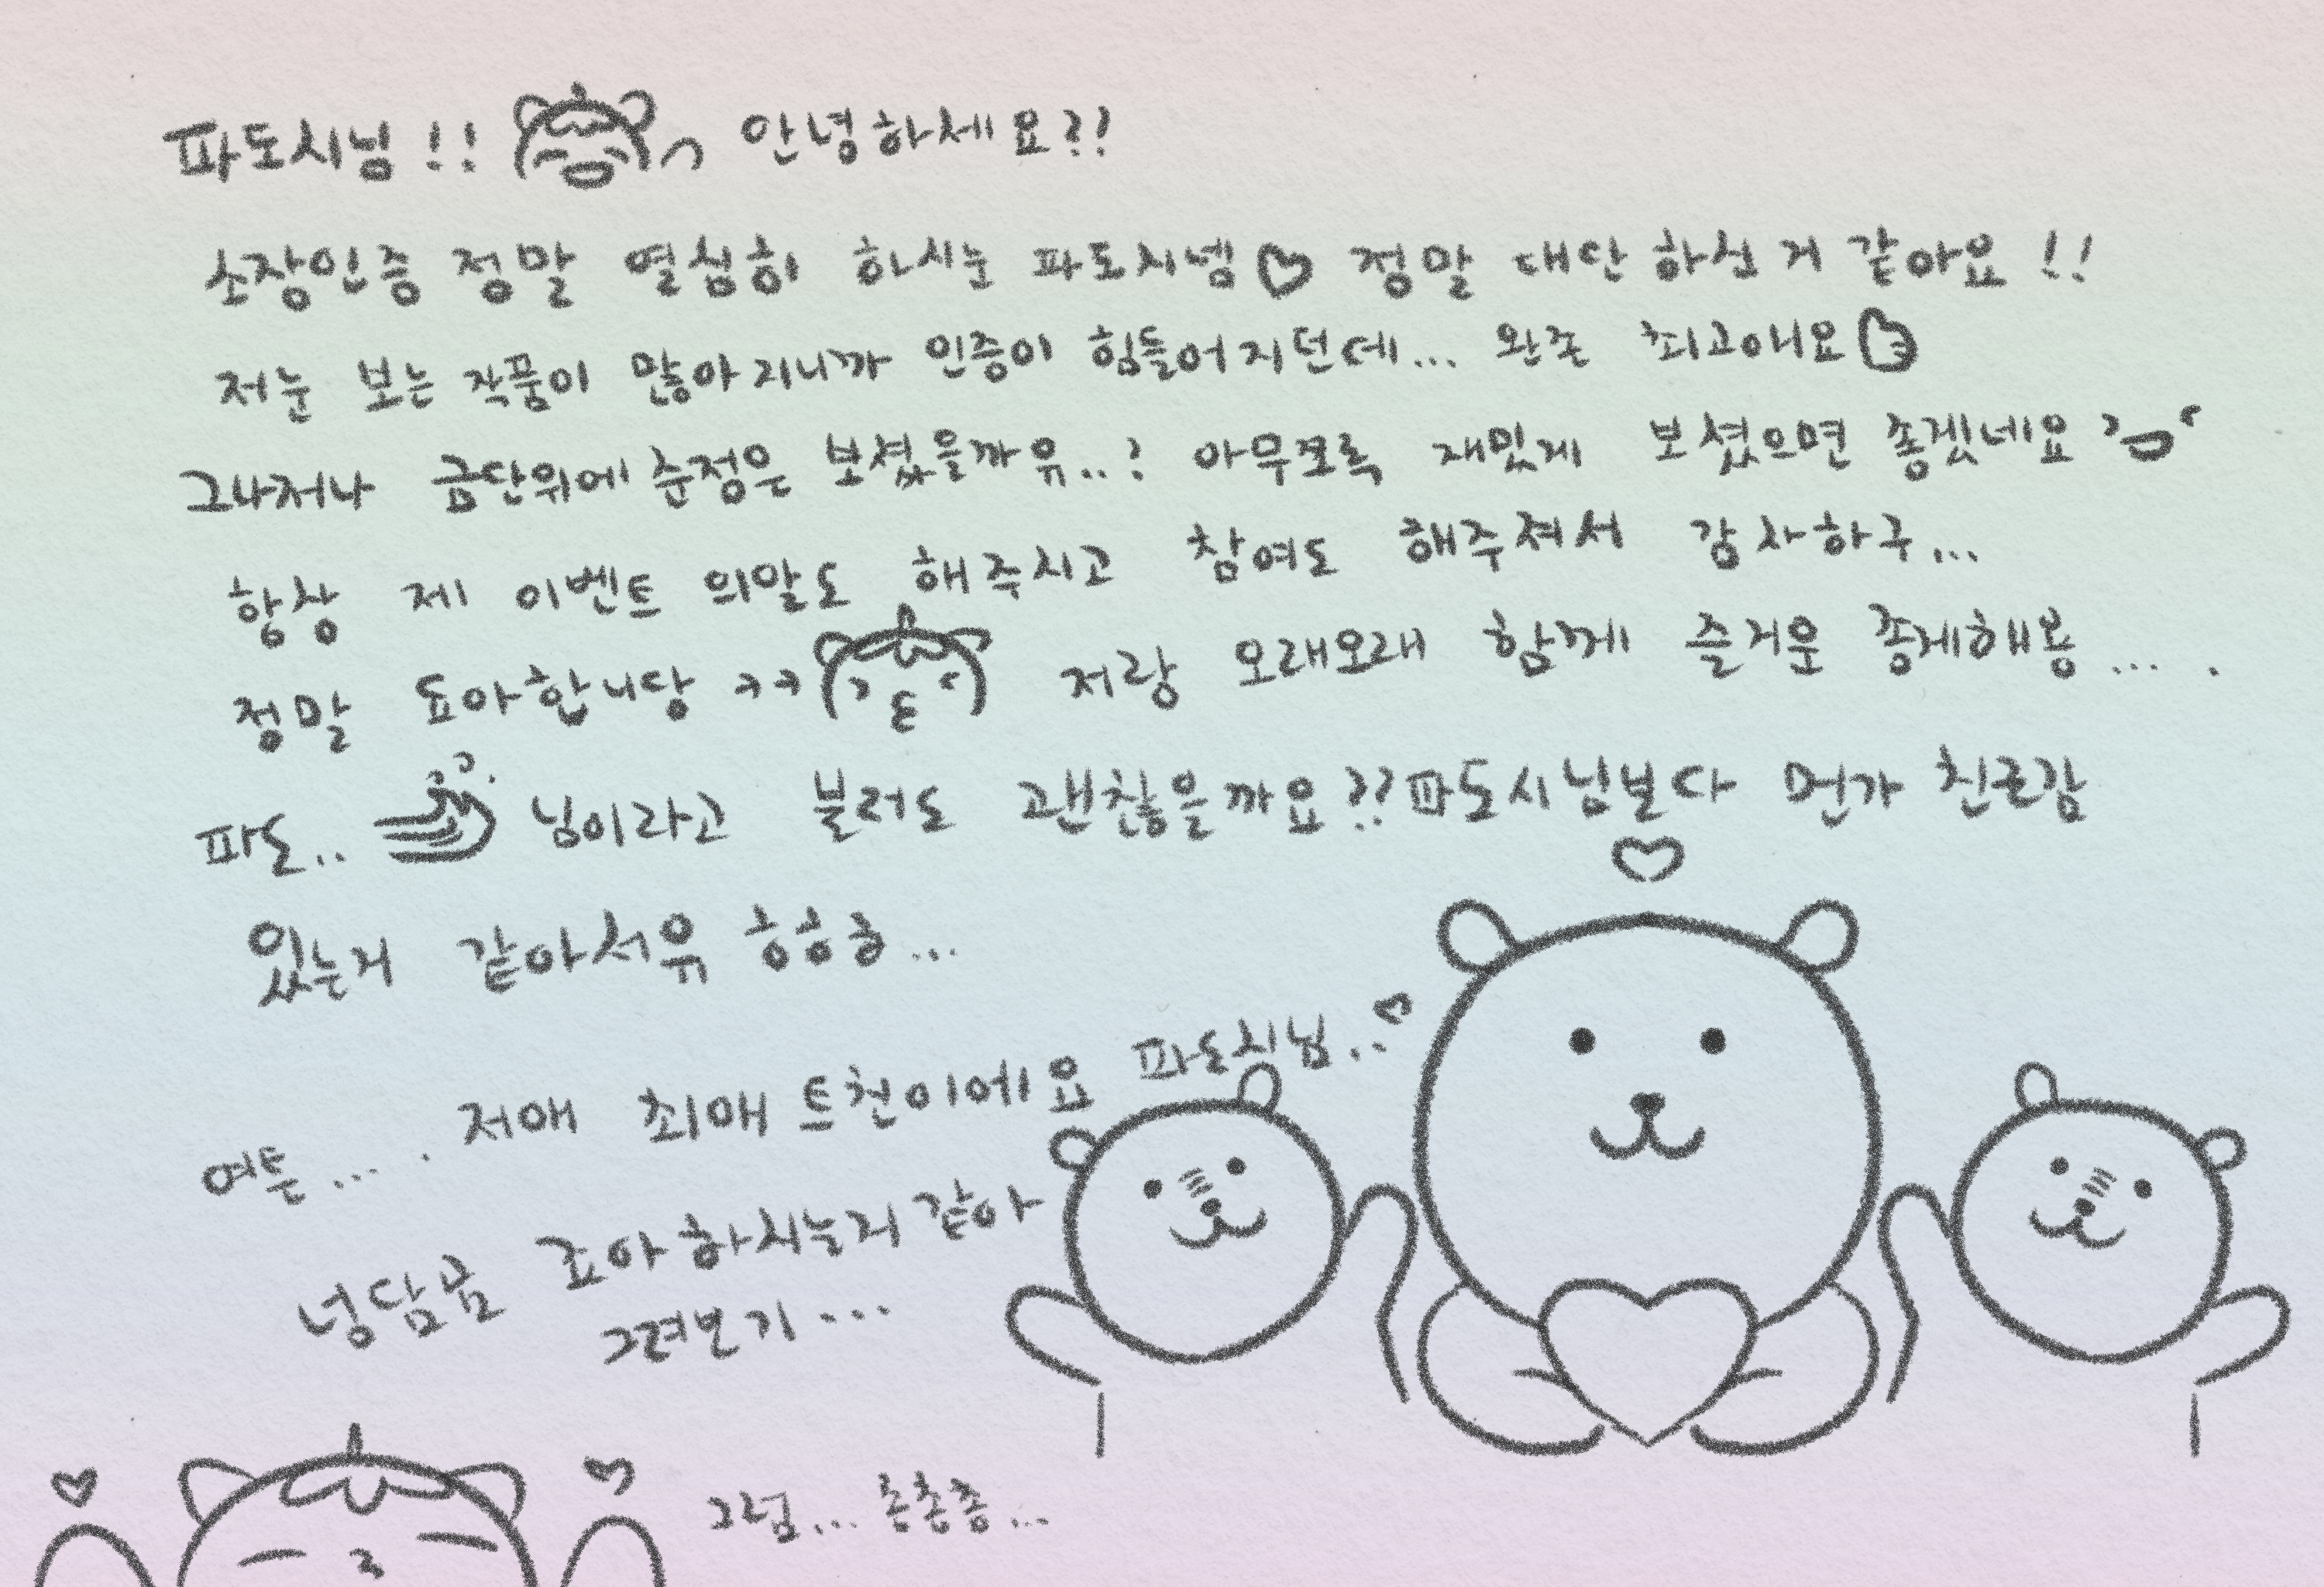 파도시님!! 안녕하세요??
소장인증 정말 열심히 하시눈 파도시넴♡ 정말 대단하신 거 같아요!!
저눈 보는 작품이 많아지니까 인증이 힘들어지던데... 완존 최고애요
그나저나 금단위에 순정은 보셨을까유..? 아무쪼록 재밌게 보셨으면 좋겠네요
항상 제 이벤트 의말도 해주시고 참여도 해주셔서 감사하구...
정말 됴아합니당 ㅋㅋ 저랑 오래오래 함께 즐거운 죵게해용... .
파도.. 님이라고 불러도 괜찮을까요?? 파도시님보다 먼가 친근감
있는거 같아서유 헝헝홍...
여튼... . 저애 최애 트친이에요 파도시님..♡
넝담곰 죠아하시는거 같아
그려보기...
그럼... 총총총...